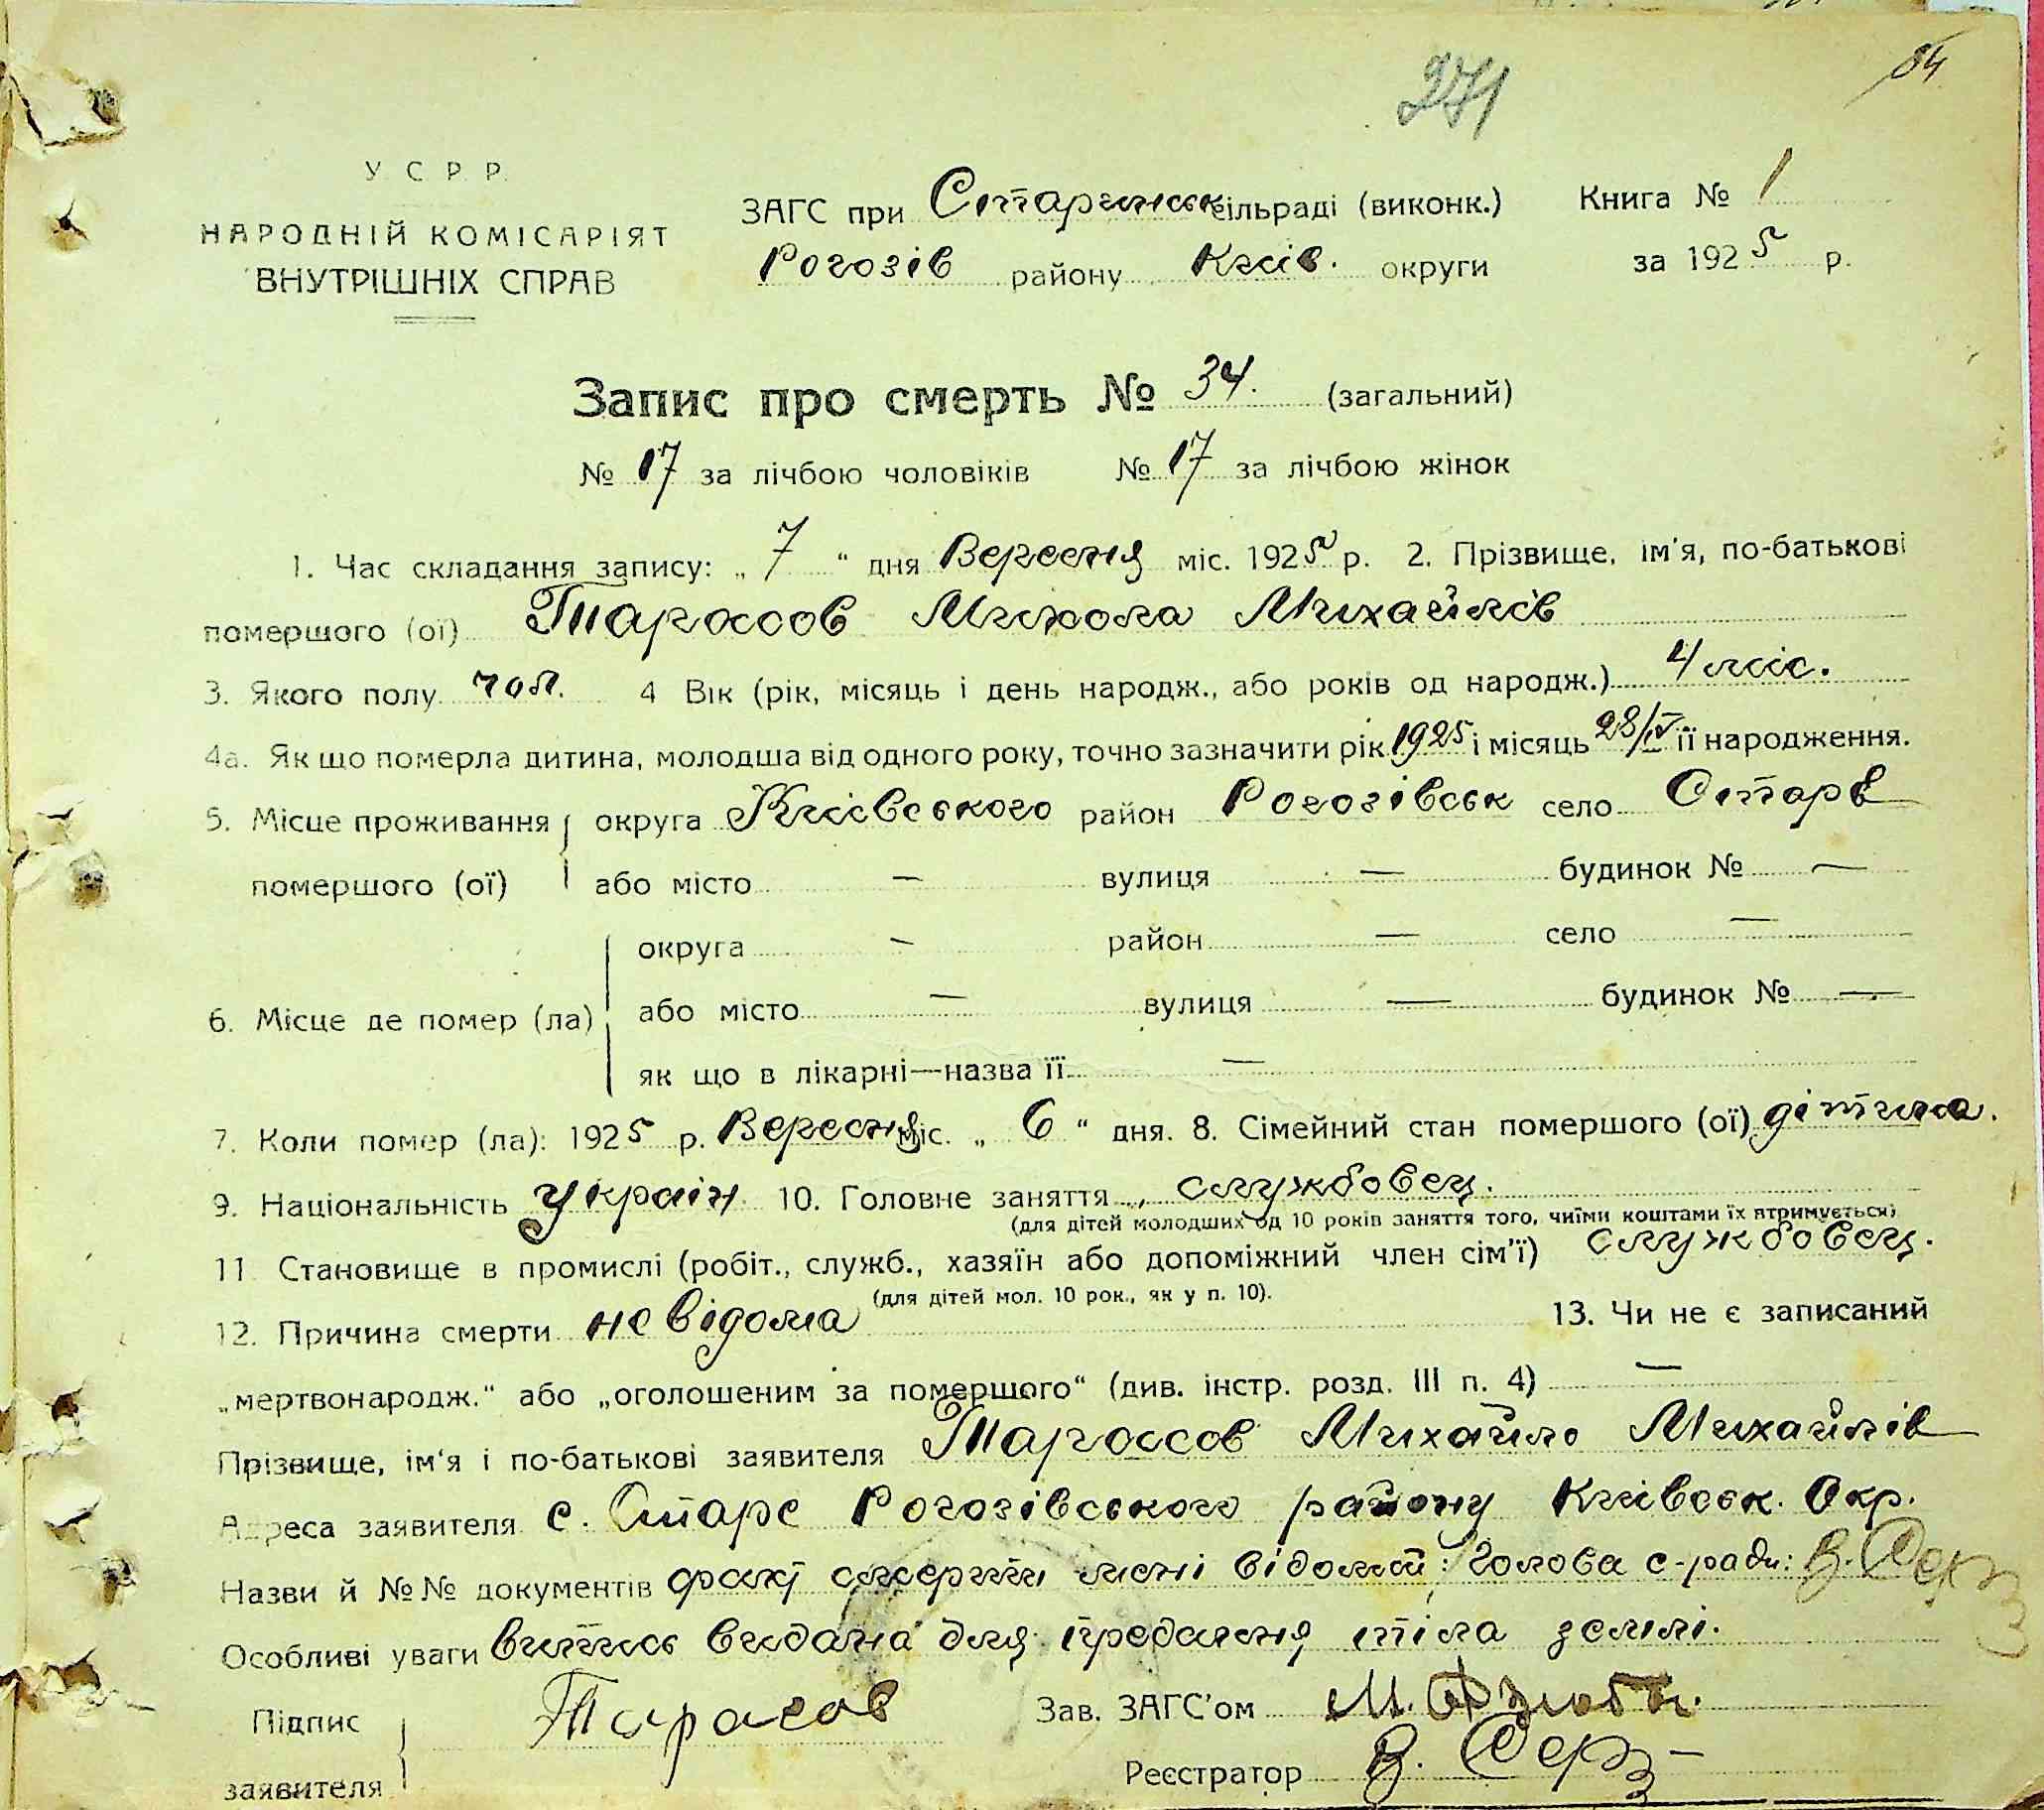 271
34
У С Р Р.
НАРОДНІЙ КОМІСАРІЯТ
ВНУТРІШНІХ СПРАВ
ЗАГС при Старинськ сільраді (виконк.) Книга № 1
Рогозів району Київ. округи за 1925 р.
Запис про смерть № 34. (загальний)
№ 17 за лічбою чоловіків № 17 за лічбою жінок
1. Час складання запису: „ 7 “ дня Вересня міс. 1925 р. 2. Прізвище, ім'я, по-батькові
помершого (ої) Тарассов Микола Михайлів
3. Якого полу чол. 4 Вік (рік, місяць і день народж., або років од народж.) 4 міс.
4а. Як що померла дитина, молодша від одного року, точно зазначити рік 1925 і місяць 28/IV її народження.
5. Місце проживання округа Київського район Рогозівськ село Старе
помершого (ої) або місто — вулиця — будинок № —
округа — район — село —
6. Місце де помер (ла) або місто — вулиця — будинок № —
як що в лікарні—назва її —
7. Коли помер (ла): 1925 р. Вересня міс. „ 6 “ дня. 8. Сімейний стан помершого (ої) дітина.
9. Національність україн 10. Головне заняття службовец.
(для дітей молодших од 10 років заняття того, чиїми коштами їх втримується)
11 Становище в промислі (робіт., служб., хазяїн або допоміжний член сім'ї) службовец.
(для дітей мол. 10 рок., як у п. 10).
12. Причина смерти не відома 13. Чи не є записаний
„мертвонародж.“ або „оголошеним за помершого“ (див. інстр. розд. III п. 4) —
Прізвище, ім'я і по-батькові заявителя Тарассов Михайло Михайлів
Адреса заявителя с. Старе Рогозівського району Київськ. Окр.
Назви й №№ документів факт смерти мені відомий: Голова с-ради:
Особливі уваги випись видана для предання тіла землі.
Підпис Тарасов Зав. ЗАГС'ом М.
заявителя Реєстратор В.